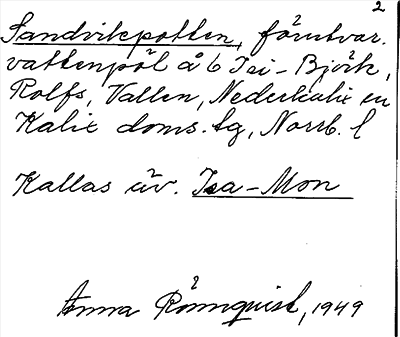 2
Sandvikspotten, förutvar.
vattenpöl å 6 Isi-Björk,
Rolfs, Vallen, Nederkalix en
Kalix doms. tg, Norrb. l
Kallas äv. Isa-Mon
Anna Rönnquist, 1949